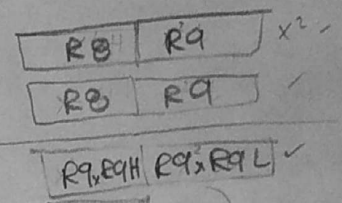 R8 R9 x² ✓
R8 R9 ✓
R9xR9H R9xR9L ✓